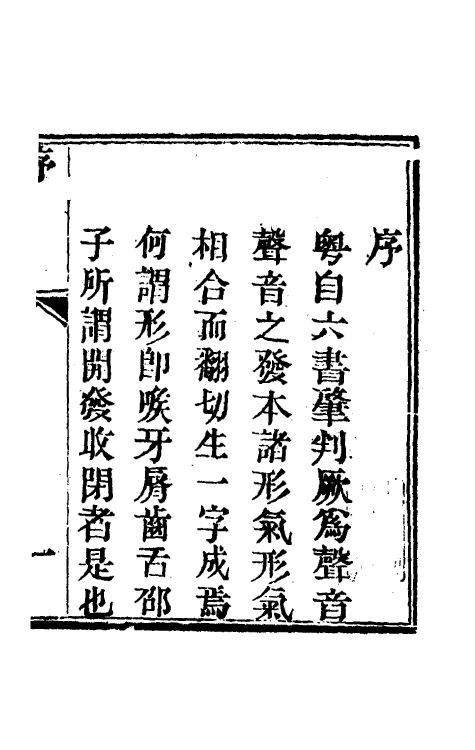 序
粤自六書肇判厥爲聲音
聲音之發本諸形氣形氣
相合而翻切生一字成焉
何謂形卽喉牙脣齒舌邵
子所謂開發收閉者是也
序
一